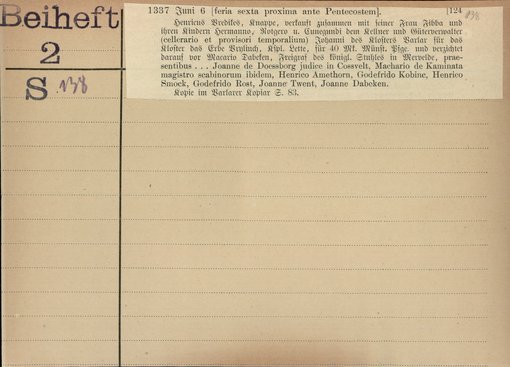 Beiheft
2
S 138
1337 Juni 6 [feria sexta proxima ante Pentecostem]. [124 138
Henricus Predikes, Knappe, verkauft zusammen mit seiner Frau Fibba und
ihren Kindern Hermanno, Rotgero u. Cunegundi dem Kellner und Güterverwalter
(cellerario et provisori temporalium) Johanni des Klosters Varlar für das
Kloster das Erbe Kspl. Lette, für 40 Mk. Münst. Pfge. und verzichtet
darauf vor Macario Dabeken, Freigraf des königl. Stuhles in Mervelde, prae-
sentibus . . . Joanne de Doesborg judice in Cosvelt, Machario de Kaminata
magistro scabinorum ibidem, Henrico Amethorn, Godefrido Kobinc, Henrico
Smock, Godefrido Rost, Joanne Twent, Joanne Dabeken.
Kopie im Varlarer Kopiar S. 83.